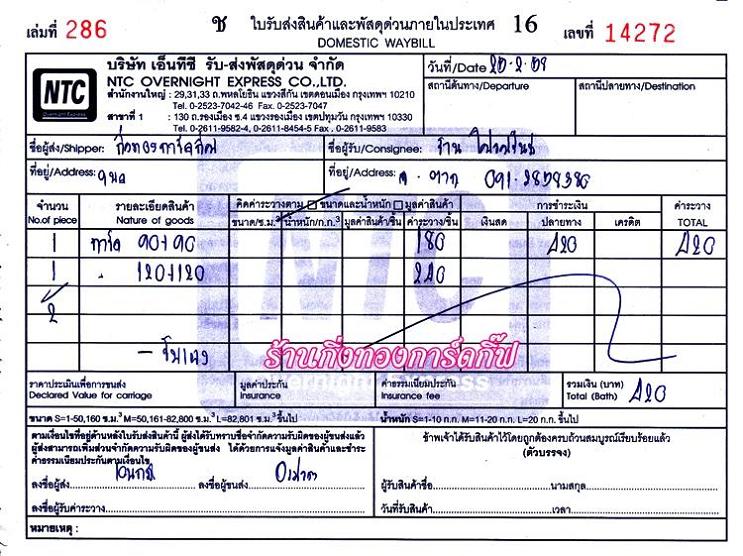 เล่มที่ 286 ช ใบรับส่งสินค้าและพัสดุด่วนภายในประเทศ 16 เลขที่ 14272
DOMESTIC WAYBILL
NTC
Overnight Express
บริษัท เอ็นทีซี รับ-ส่งพัสดุด่วน จำกัด
NTC OVERNIGHT EXPRESS CO.,LTD.
สำนักงานใหญ่ : 29,31,33 ถ.พหลโยธิน แขวงสีกัน เขตดอนเมือง กรุงเทพฯ 10210
Tel. 0-2523-7042-46 Fax. 0-2523-7047
สาขาที่ 1 : 130 ถ.รองเมือง ซ.4 แขวงรองเมือง เขตปทุมวัน กรุงเทพฯ 10330
Tel. 0-2611-9582-4, 0-2611-8454-5 Fax. 0-2611-9583
วันที่/Date
สถานีต้นทาง/Departure สถานีปลายทาง/Destination
ชื่อผู้ส่ง/Shipper: กิ่งทองการ์ดกิ๊ฟ ชื่อผู้รับ/Consignee: ร้าน
ที่อยู่/Address: ที่อยู่/Address: จ. ตาก
จำนวน รายละเอียดสินค้า คิดค่าระวางตาม ขนาดและน้ำหนัก มูลค่าสินค้า การชำระเงิน ค่าระวาง
No.of piece Nature of goods ขนาด/ซ.ม.³ น้ำหนัก/ก.ก.³ มูลค่าสินค้า/ชิ้น ค่าระวาง/ชิ้น เงินสด ปลายทาง เครดิต TOTAL
1 การ์ด 90+90 180 420 420
1 " 120+120 240
2
ร้านกิ่งทองการ์ดกิ๊ฟ
ราคาประเมินเพื่อการขนส่ง มูลค่าประกัน ค่าธรรมเนียมประกัน รวมเงิน (บาท) 420
Declared Value for carriage Insurance Insurance fee Total (Bath)
ขนาด S=1-50,160 ซ.ม.³ M=50,161-82,800 ซ.ม.³ L=82,801 ซ.ม.³ ขึ้นไป น้ำหนัก S=1-10 ก.ก. M=11-20 ก.ก. L=20 ก.ก. ขึ้นไป
ตามเงื่อนไขที่อยู่ด้านหลังใบรับส่งสินค้านี้ ผู้ส่งได้รับทราบข้อจำกัดความรับผิดของผู้ขนส่งแล้ว
ผู้ส่งสามารถเพิ่มส่วนจำกัดความรับผิดของผู้ขนส่ง ได้ด้วยการแจ้งมูลค่าสินค้าและชำระ
ค่าธรรมเนียมประกันตามเงื่อนไข
ข้าพเจ้าได้รับสินค้าไว้โดยถูกต้องครบถ้วนสมบูรณ์เรียบร้อยแล้ว
(ตัวบรรจง)
ลงชื่อผู้ส่ง ลงชื่อผู้ขนส่ง
ผู้รับสินค้าชื่อ นามสกุล
ลงชื่อผู้รับค่าระวาง วันที่รับสินค้า เวลา
หมายเหตุ :